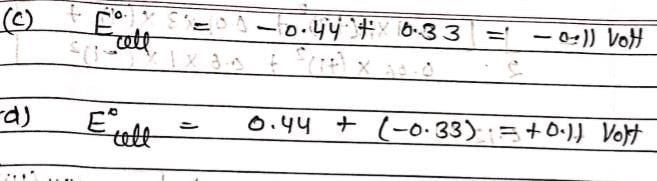 (c) E°cell = -0.44 + 0.33 = -0.11 Volt
d) E°cell = 0.44 + (-0.33) = +0.11 Volt